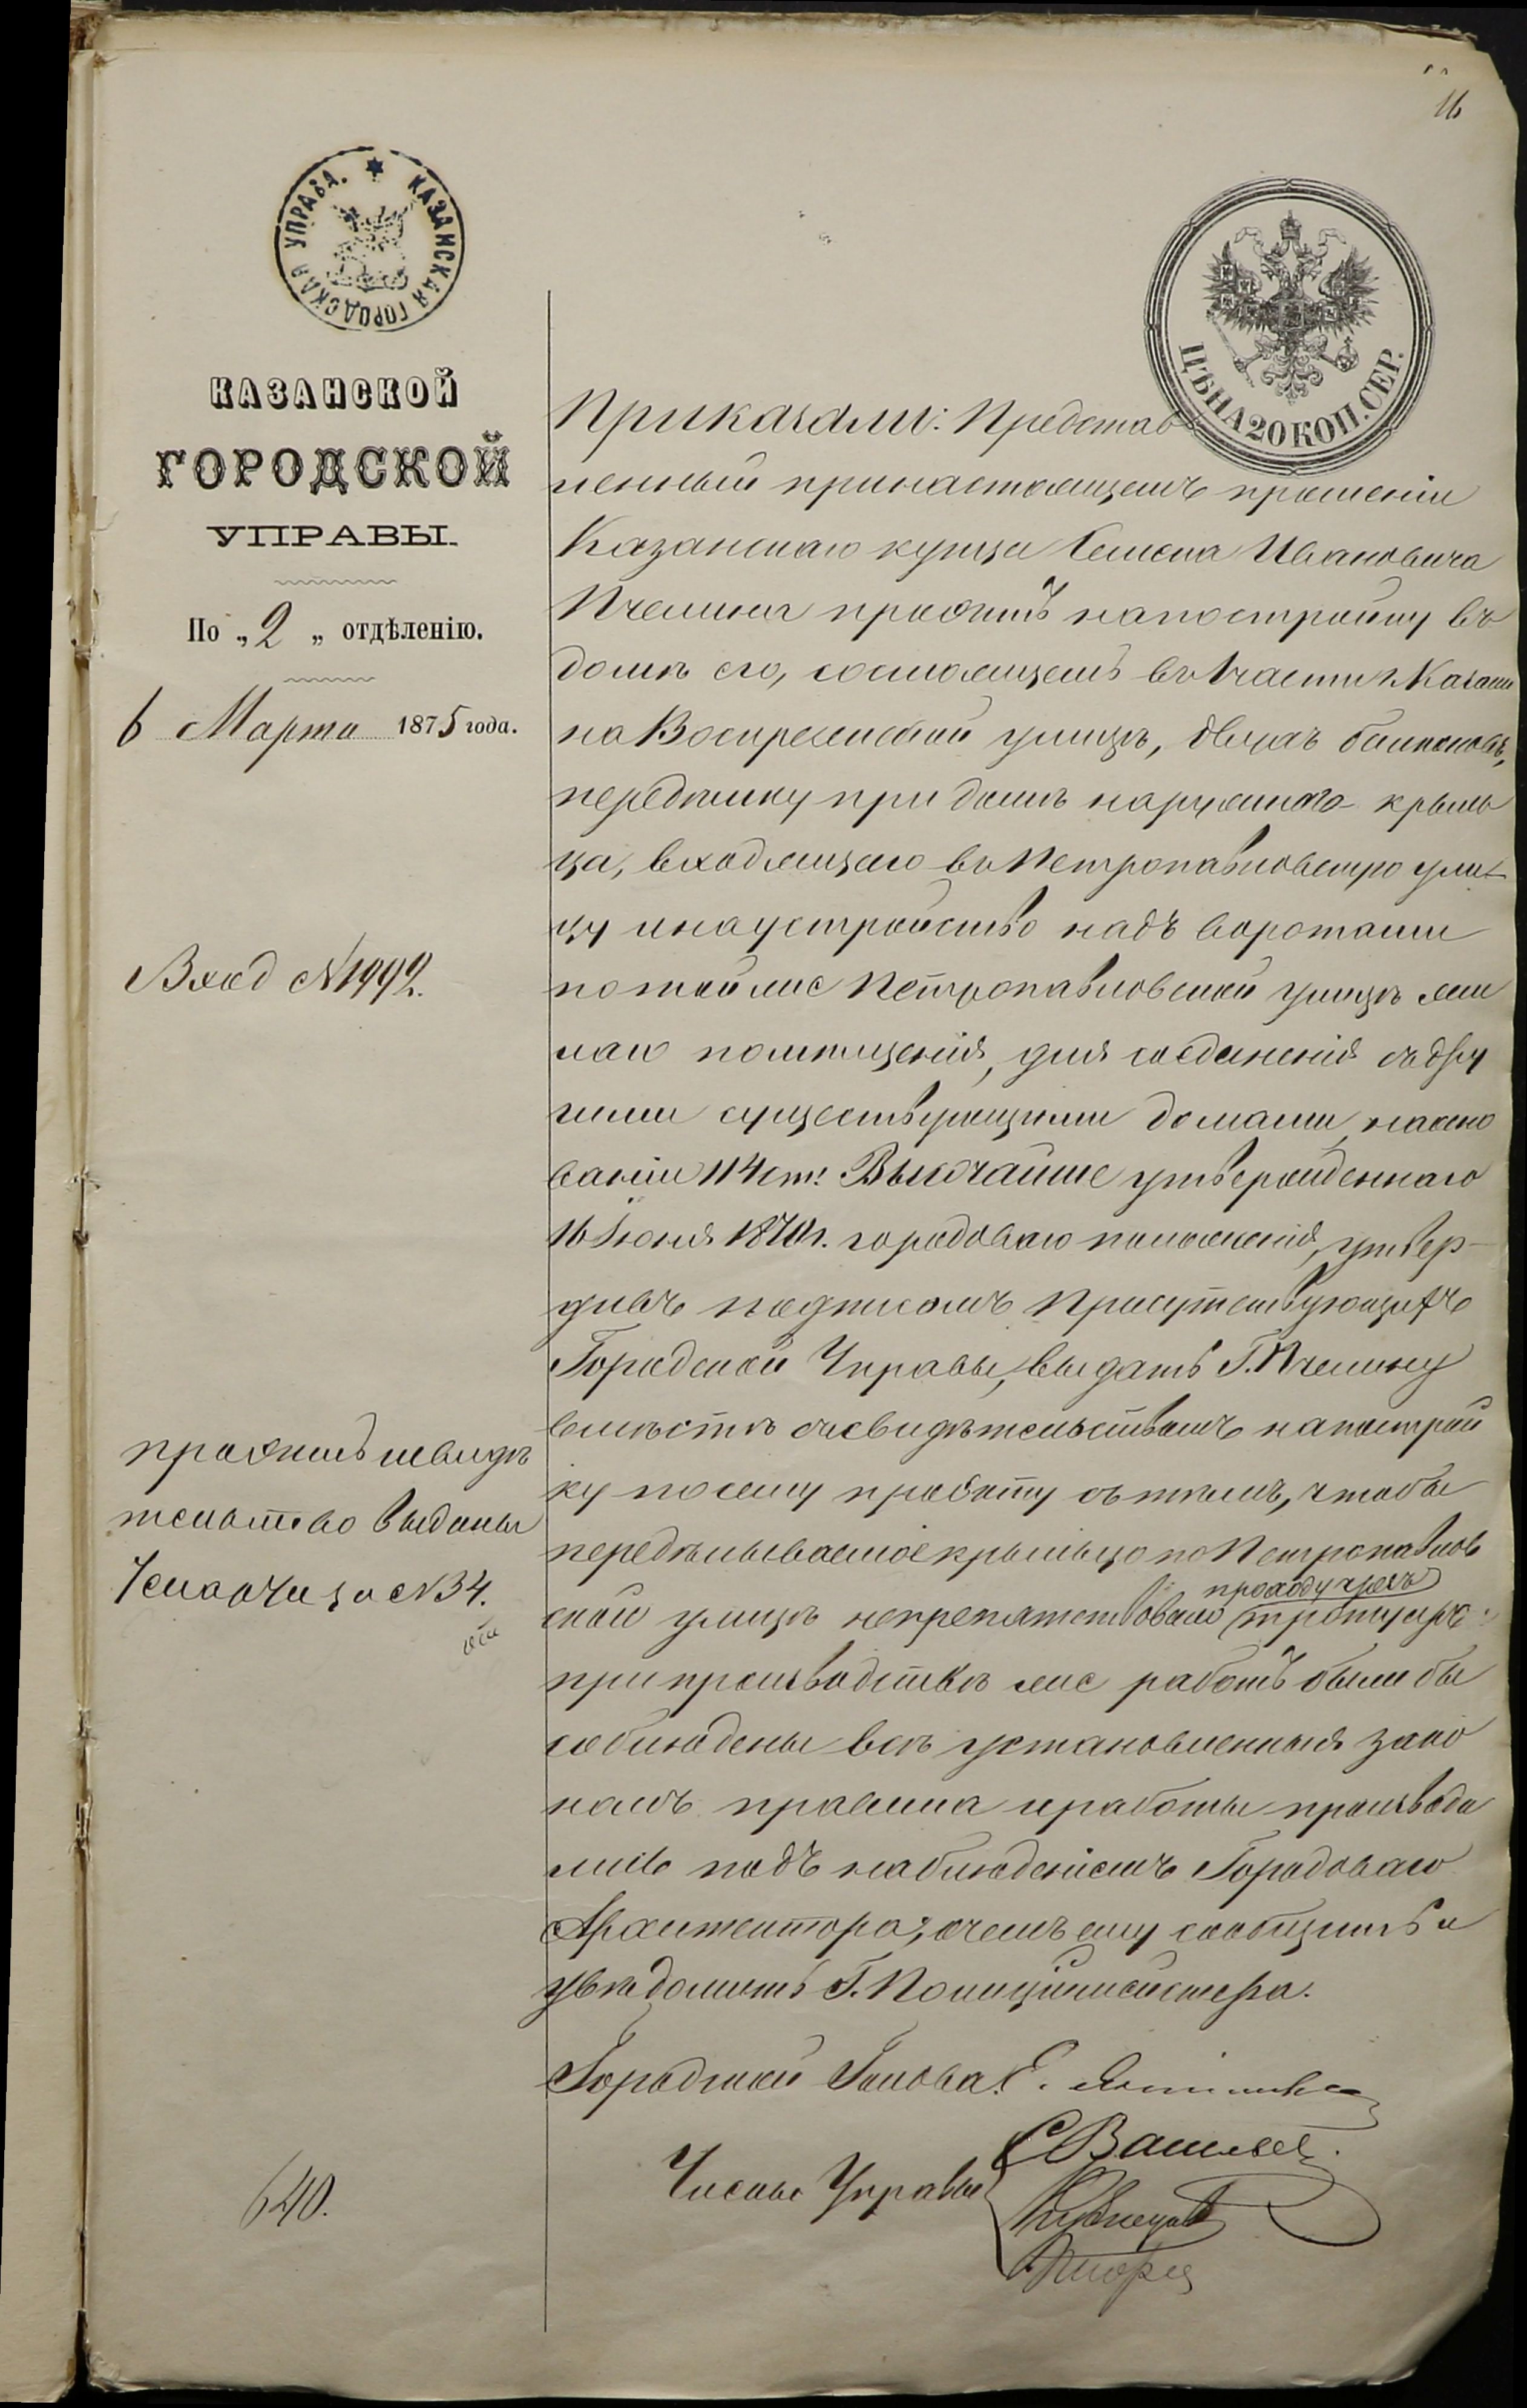 16
КАЗАНСКАЯ ГОРОДСКАЯ УПРАВА.
ЦѢНА 20 КОП. СЕР.
КАЗАНСКОЙ
ГОРОДСКОЙ
УПРАВЫ.
По „2„ отдѣленію.
6 Марта 1875 года.
Вход №1992.
проэктъ и свидѣ
тельство выданы
7 числа за №34.
640.
Приказали: Представ
ленный при настоящемъ прошеніи
Казанскаго купца Семена Ивановича
Пчелина проэктъ на постройку въ
домѣ его, состоящемъ въ 1 части г. Казани
на Воскресенской улицѣ, двухъ балконовъ,
передѣлку при домѣ наружнаго крыль
ца, входящаго въ Петропавловскую ули-
цу и на устройство надъ воротами
по той же Петропавловской улицѣ жи
лаго помѣщенія, для соединенія съ дру
гими существующими домами, на осно
ваніи 114 ст. Высочайше утвержденнаго
16 Іюня 1870 г. городоваго положенія, утвер-
дивъ подписомъ Присутствующихъ
Городской Управы, выдать Г. Пчелину
вмѣстѣ съ свидѣтельствомъ на построй
ку по сему проэкту съ тѣмъ, чтобы
передѣлываемое крыльцо по Петропавлов
ской улицѣ не препятствовало проходу чрезъ тротуаръ
при производствѣ же работъ были бы
соблюдены всѣ установленныя зако
номъ правила и работы производи
лись подъ наблюденіемъ Городоваго
Архитектора, о чемъ ему сообщить и
увѣдомить Г. Полиціймейстера.
Городской Голова Е.
Члены Управы
С Васильев
Кузнецов